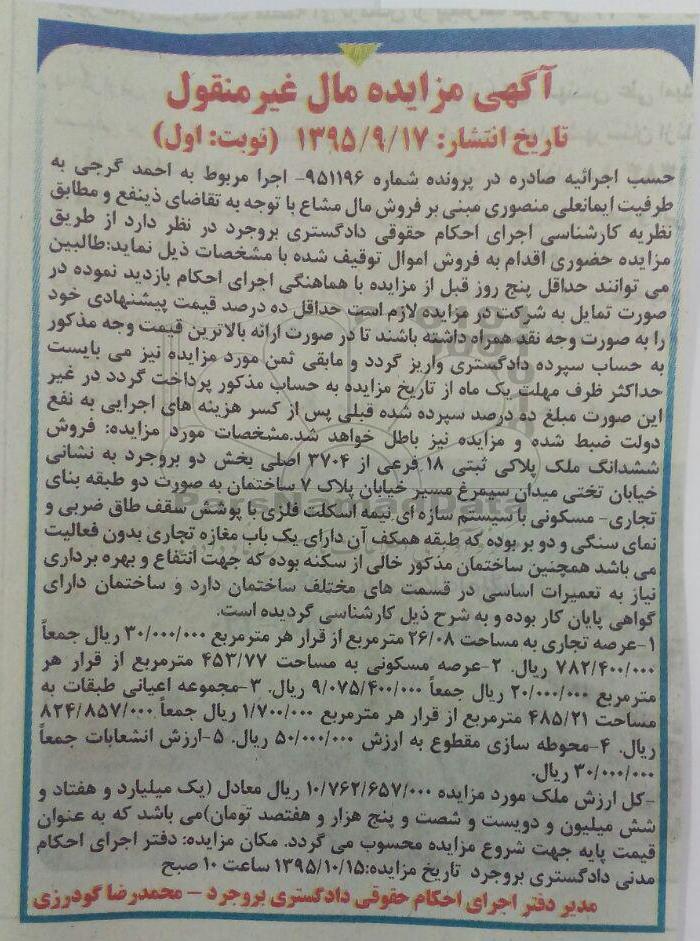 آگهی مزایده مال غیرمنقول
تاریخ انتشار: ۱۳۹۵/۹/۱۷ (نوبت: اول)
حسب اجرائیه صادره در پرونده شماره ۹۵۱۱۹۶- اجرا مربوط به احمد گرجی به
طرفیت ایمانعلی منصوری مبنی بر فروش مال مشاع با توجه به تقاضای ذینفع و مطابق
نظریه کارشناسی اجرای احکام حقوقی دادگستری بروجرد در نظر دارد از طریق
مزایده حضوری اقدام به فروش اموال توقیف شده با مشخصات ذیل نماید:طالبین
می توانند حداقل پنج روز قبل از مزایده با هماهنگی اجرای احکام بازدید نموده در
صورت تمایل به شرکت در مزایده لازم است حداقل ده درصد قیمت پیشنهادی خود
را به صورت وجه نقد همراه داشته باشند تا در صورت ارائه بالاترین قیمت وجه مذکور
به حساب سپرده دادگستری واریز گردد و مابقی ثمن مورد مزایده نیز می بایست
حداکثر ظرف مهلت یک ماه از تاریخ مزایده به حساب مذکور پرداخت گردد در غیر
این صورت مبلغ ده درصد سپرده شده قبلی پس از کسر هزینه های اجرایی به نفع
دولت ضبط شده و مزایده نیز باطل خواهد شد.مشخصات مورد مزایده: فروش
ششدانگ ملک پلاکی ثبتی ۱۸ فرعی از ۳۷۰۴ اصلی بخش دو بروجرد به نشانی
خیابان تختی میدان سیمرغ مسیر خیابان پلاک ۷ ساختمان به صورت دو طبقه بنای
تجاری- مسکونی با سیستم سازه ای نیمه اسکلت فلزی با پوشش سقف طاق ضربی و
نمای سنگی و دو بر بوده که طبقه همکف آن دارای یک باب مغازه تجاری بدون فعالیت
می باشد همچنین ساختمان مذکور خالی از سکنه بوده که جهت انتفاع و بهره برداری
نیاز به تعمیرات اساسی در قسمت های مختلف ساختمان دارد و ساختمان دارای
گواهی پایان کار بوده و به شرح ذیل کارشناسی گردیده است.
۱-عرصه تجاری به مساحت ۲۶/۰۸ مترمربع از قرار هر مترمربع ۳۰/۰۰۰/۰۰۰ ریال جمعاً
۷۸۲/۴۰۰/۰۰۰ ریال. ۲-عرصه مسکونی به مساحت ۴۵۳/۷۷ مترمربع از قرار هر
مترمربع ۲۰/۰۰۰/۰۰۰ ریال جمعاً ۹/۰۷۵/۴۰۰/۰۰۰ ریال. ۳-مجموعه اعیانی طبقات به
مساحت ۴۸۵/۲۱ مترمربع از قرار هر مترمربع ۱/۷۰۰/۰۰۰ ریال جمعاً ۸۲۴/۸۵۷/۰۰۰
ریال. ۴-محوطه سازی مقطوع به ارزش ۵۰/۰۰۰/۰۰۰ ریال. ۵-ارزش انشعابات جمعاً
۳۰/۰۰۰/۰۰۰ ریال.
-کل ارزش ملک مورد مزایده ۱۰/۷۶۲/۶۵۷/۰۰۰ ریال معادل (یک میلیارد و هفتاد و
شش میلیون و دویست و شصت و پنج هزار و هفتصد تومان)می باشد که به عنوان
قیمت پایه جهت شروع مزایده محسوب می گردد. مکان مزایده: دفتر اجرای احکام
مدنی دادگستری بروجرد تاریخ مزایده:۱۳۹۵/۱۰/۱۵ ساعت ۱۰ صبح
مدیر دفتر اجرای احکام حقوقی دادگستری بروجرد – محمدرضا گودرزی
ParsNamadData